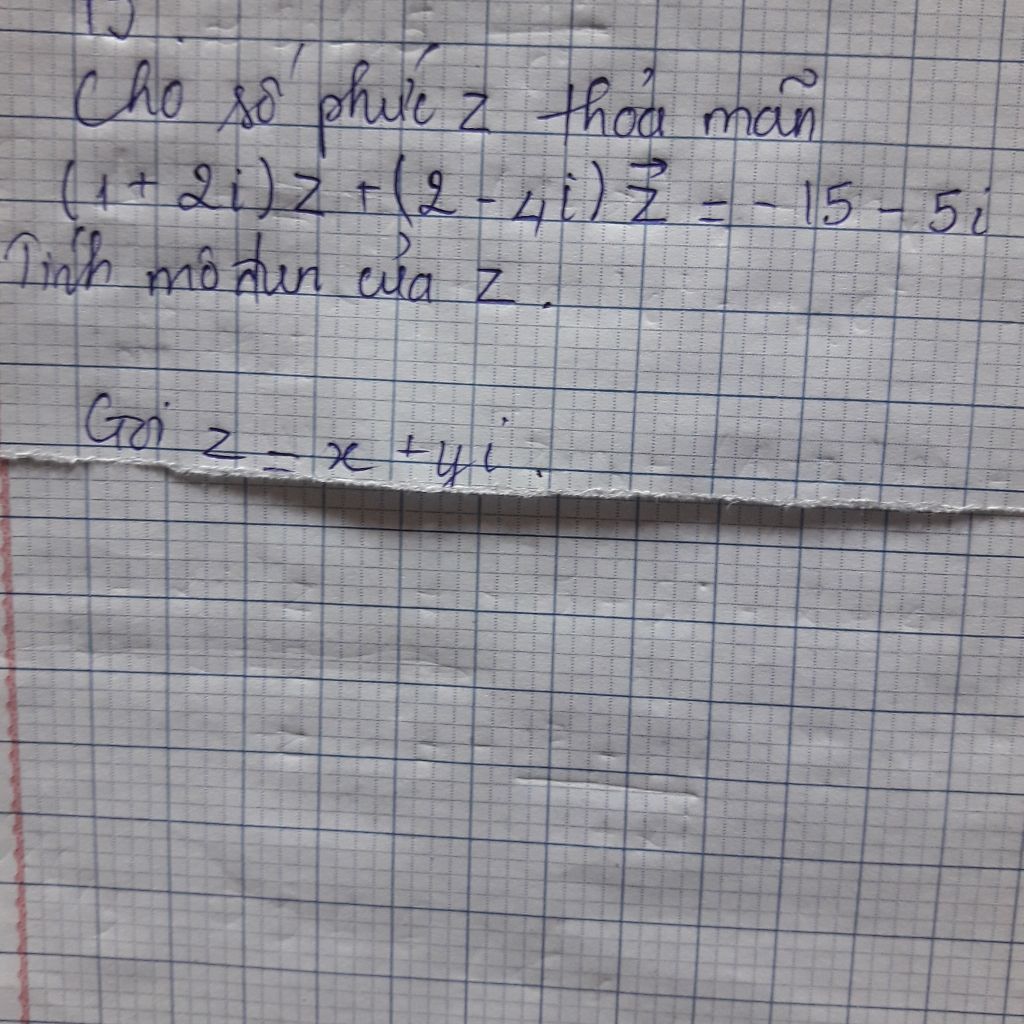 Cho số phức z thỏa mãn
(1 + 2i) z + (2 - 4i) z⃗ = - 15 - 5i
Tính mô đun của z.
Gọi z = x + yi.